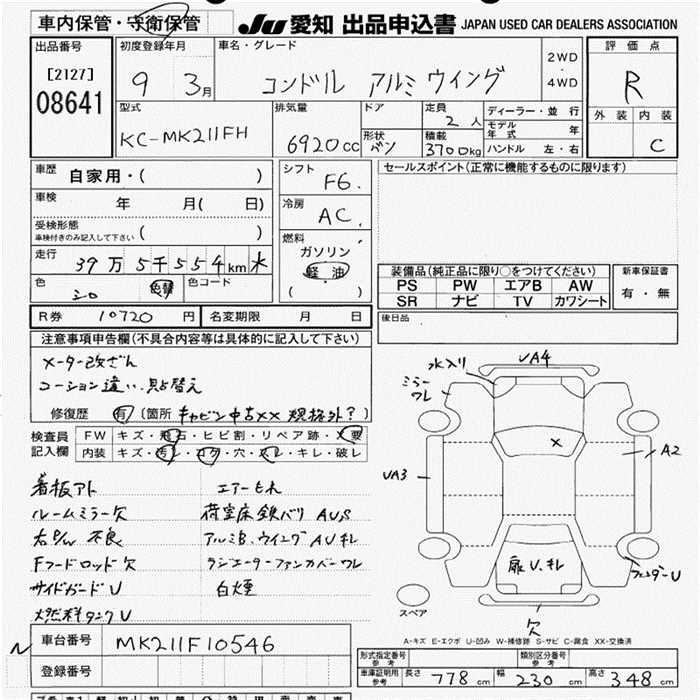 車内保管・守衛保管
JU 愛知 出品申込書 JAPAN USED CAR DEALERS ASSOCIATION
出品番号
[2127]
08641
初度登録年月
9 3月
車名・グレード
コンドル アルミウイング
2WD
・
4WD
評価点
R
外装 内装
C
型式
KC-MK211FH
排気量
6920cc
ドア
形状
バン
定員
2人
積載
3700kg
ディーラー・並行
モデル年式 年
ハンドル 左・右
車歴
自家用・( )
車検
年 月( 日)
受検形態
車検付きのみ記入して下さい ( )
走行
39万5千554km
色
シロ
色替
色コード
シフト
F6.
冷房
AC.
燃料
ガソリン
軽油
( )
セールスポイント(正常に機能するものに限ります)
装備品(純正品に限り○をつけてください)
PS PW エアB AW
SR ナビ TV カワシート
新車保証書
有・無
R券 10720円
名変期限 月 日
後日品
注意事項申告欄(不具合内容等は具体的に記入して下さい)
メーター改ざん
コーション違い、貼替え
修復歴 有 [箇所 キャビン中古××規格外?)
検査員記入欄
FW キズ・飛石・ヒビ割・リペア跡・X要
内装 キズ・汚レ・コゲ・穴・スレ・キレ・破レ
看板アト
ルームミラー欠
右P/W不良
Fフードロッド欠
サイドガードU
燃料タンクU
エアーもれ
荷室床鉄バリ AU,S
アルミB、ウイングAUキレ
ラジエーターファンカバーワレ
白煙
水入り
ミラーワレ
UA4
X
A2
UA3
扉U、キレ
フェンダーU
スペア
欠
A-キズ E-エクボ U-凹み W-補修跡 S-サビ C-腐食 XX-交換済
N
車台番号 MK211F10546
登録番号
形式指定番号
参考
類別区分番号
参考
車庫証明用
参考
長さ 778cm 幅 230cm 高さ 348cm